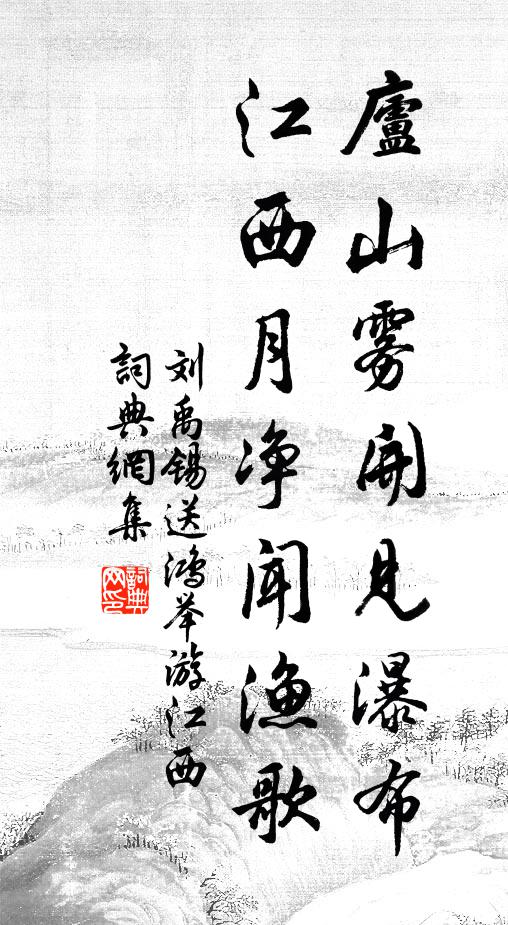 廬山雾開見瀑布
江西月净闻漁歌
刘禹锡送鴻举游江西
詞典網集
詞典网印